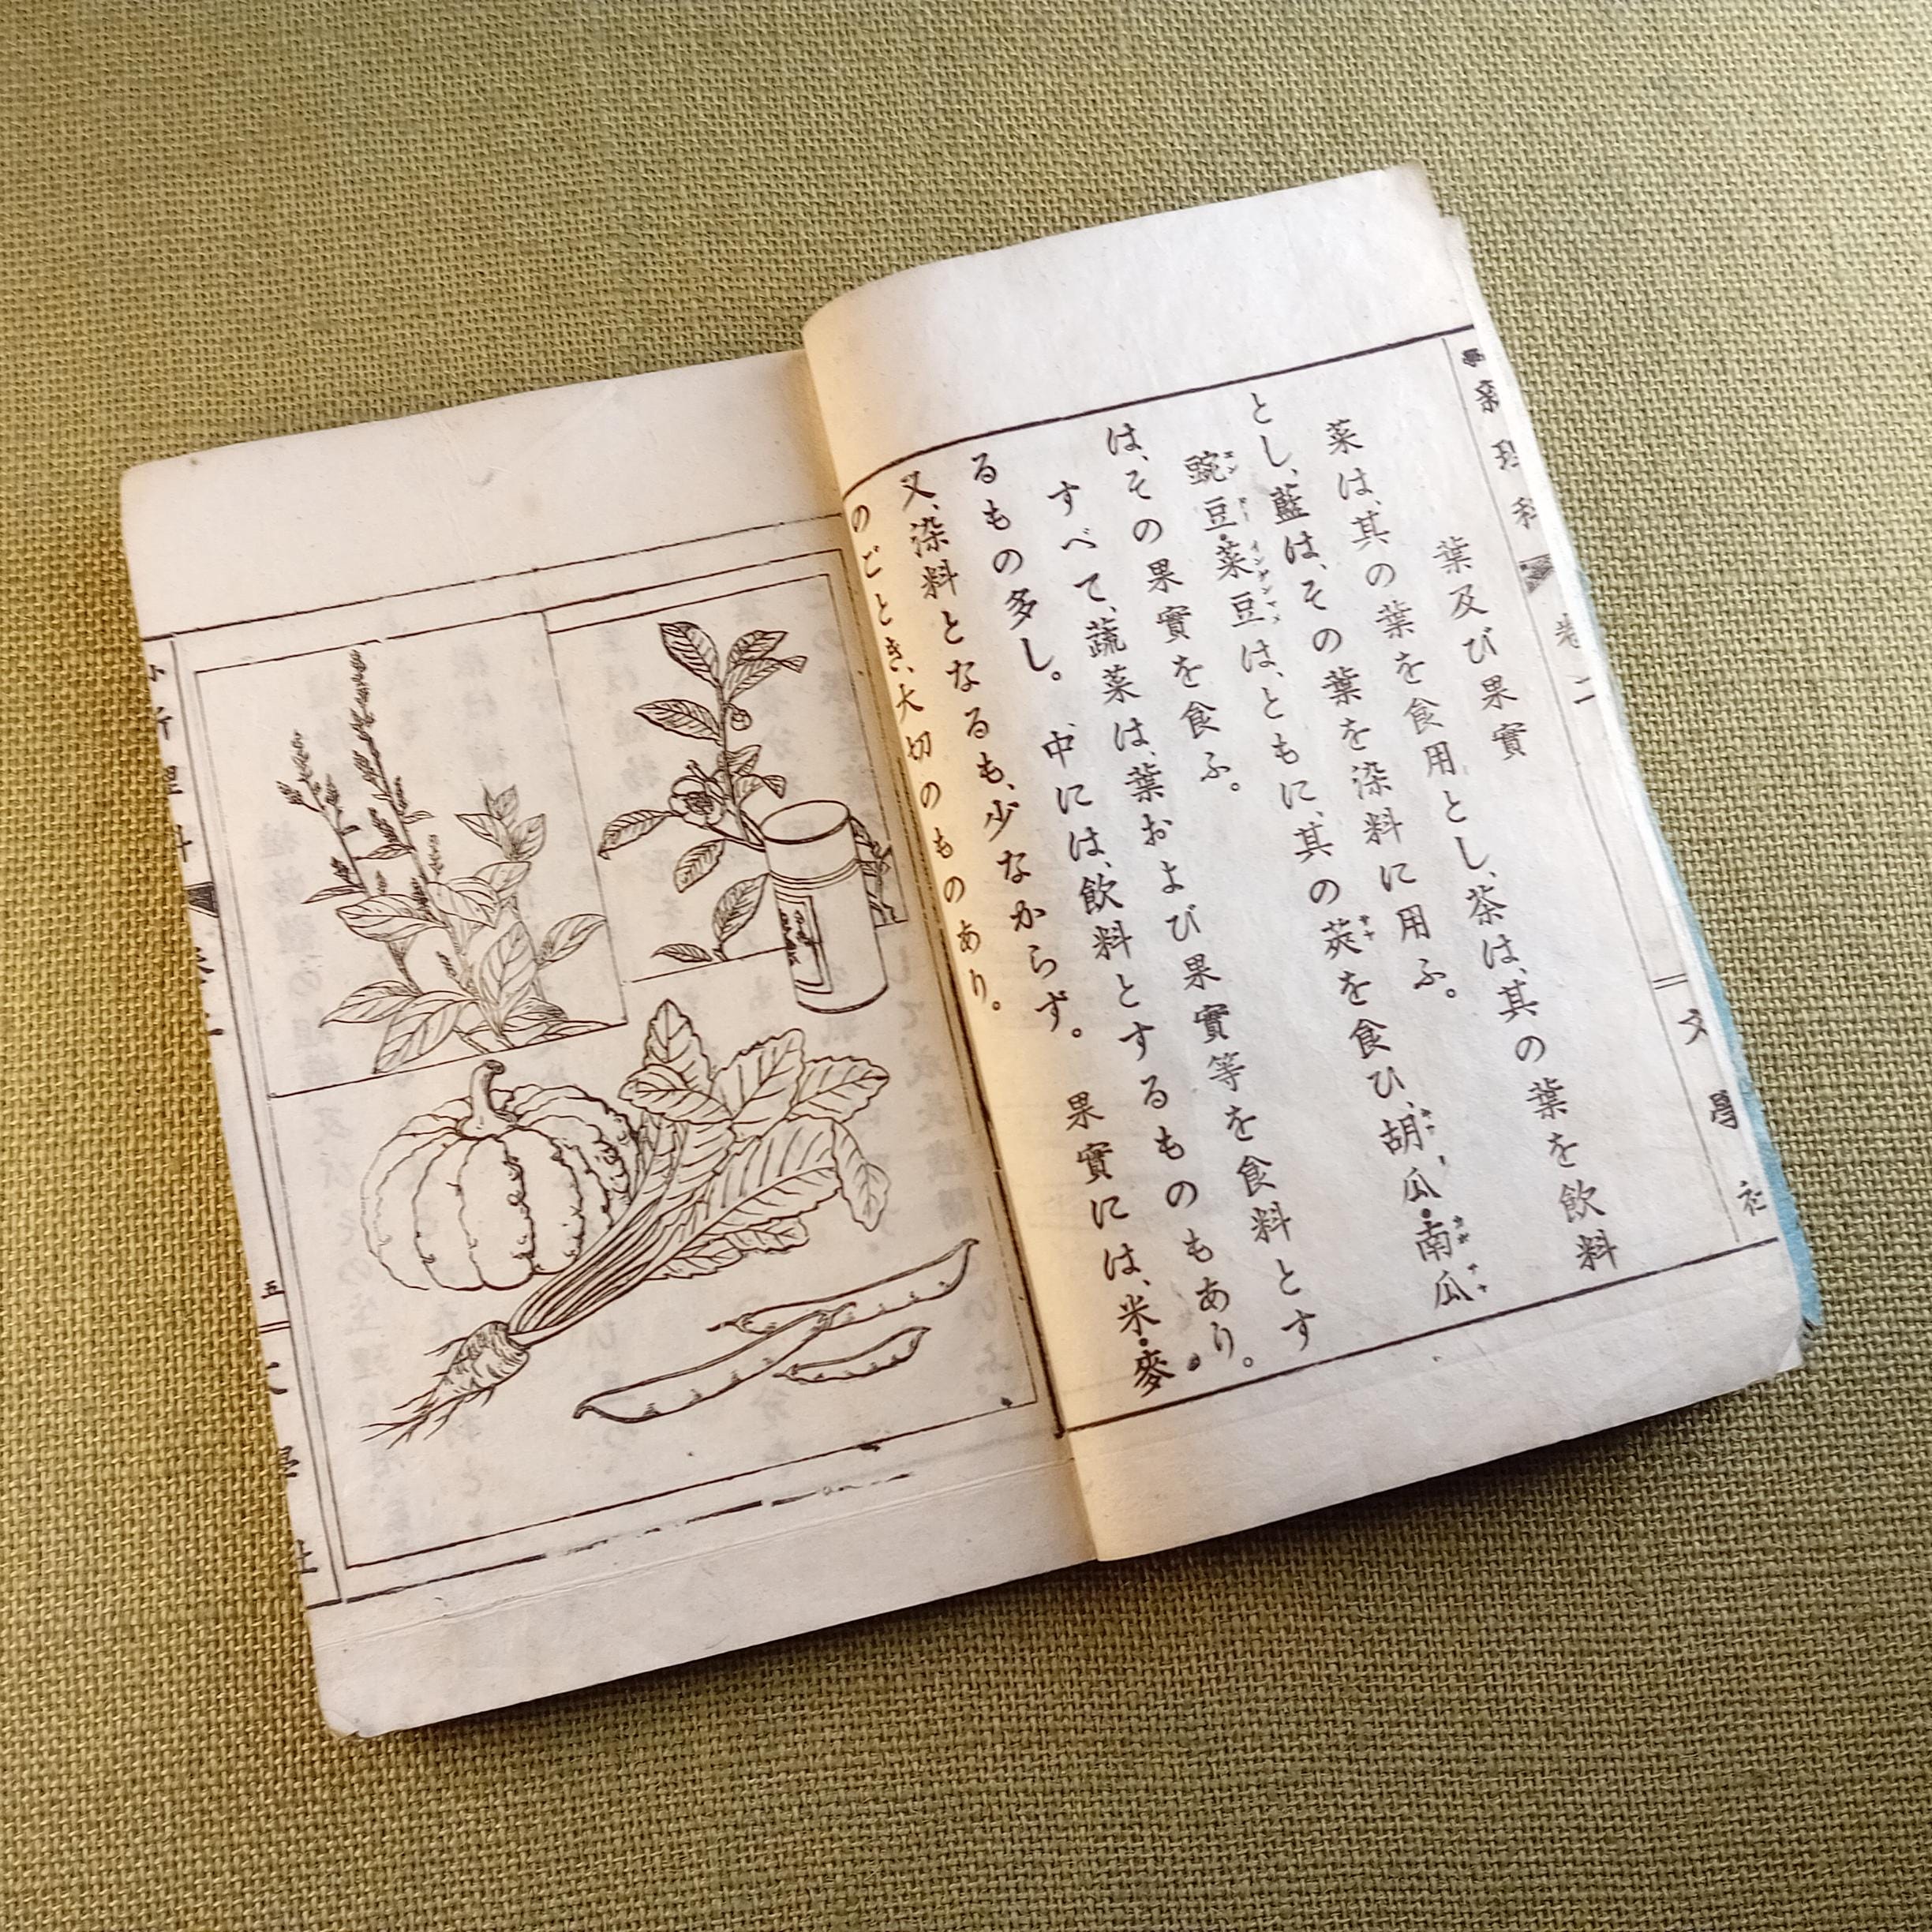 新理科
卷二
文學社
葉及び果實
菜は、其の葉を食用とし、茶は、其の葉を飲料
とし、藍は、その葉を染料に用ふ。
豌豆・菜豆は、ともに、其の莢を食ひ、胡瓜・南瓜
は、その果實を食ふ。
すべて、蔬菜は、葉および果實等を食料とす
るもの多し。中には、飲料とするものもあり。
又、染料となるも、少なからず。果實には、米・麥
のごとき、大切のものあり。
五